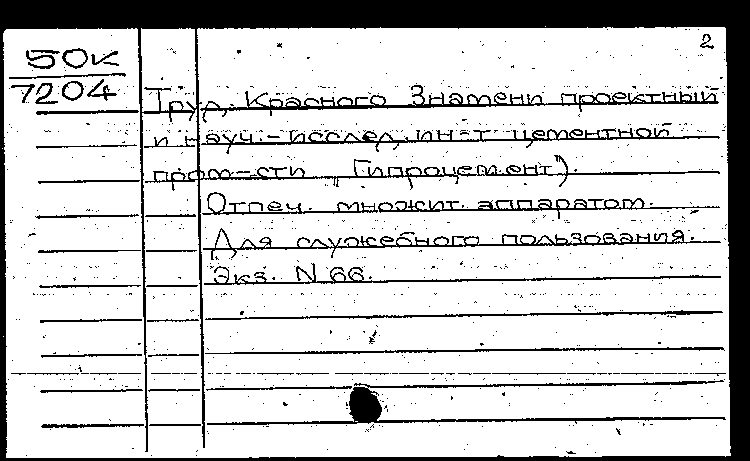 2
50к
7204
Труд. Красного Знамени проектный
и науч.-исслед. ин-т цементной
пром-сти „Гипроцемент").
Отпеч. множит. аппаратом.
Для служебного пользования.
Экз. N 66.